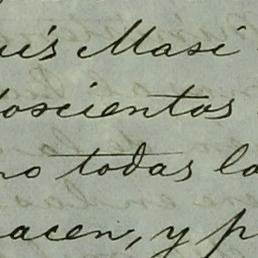 uis Masi
doscientos
no todas la
acen, y p